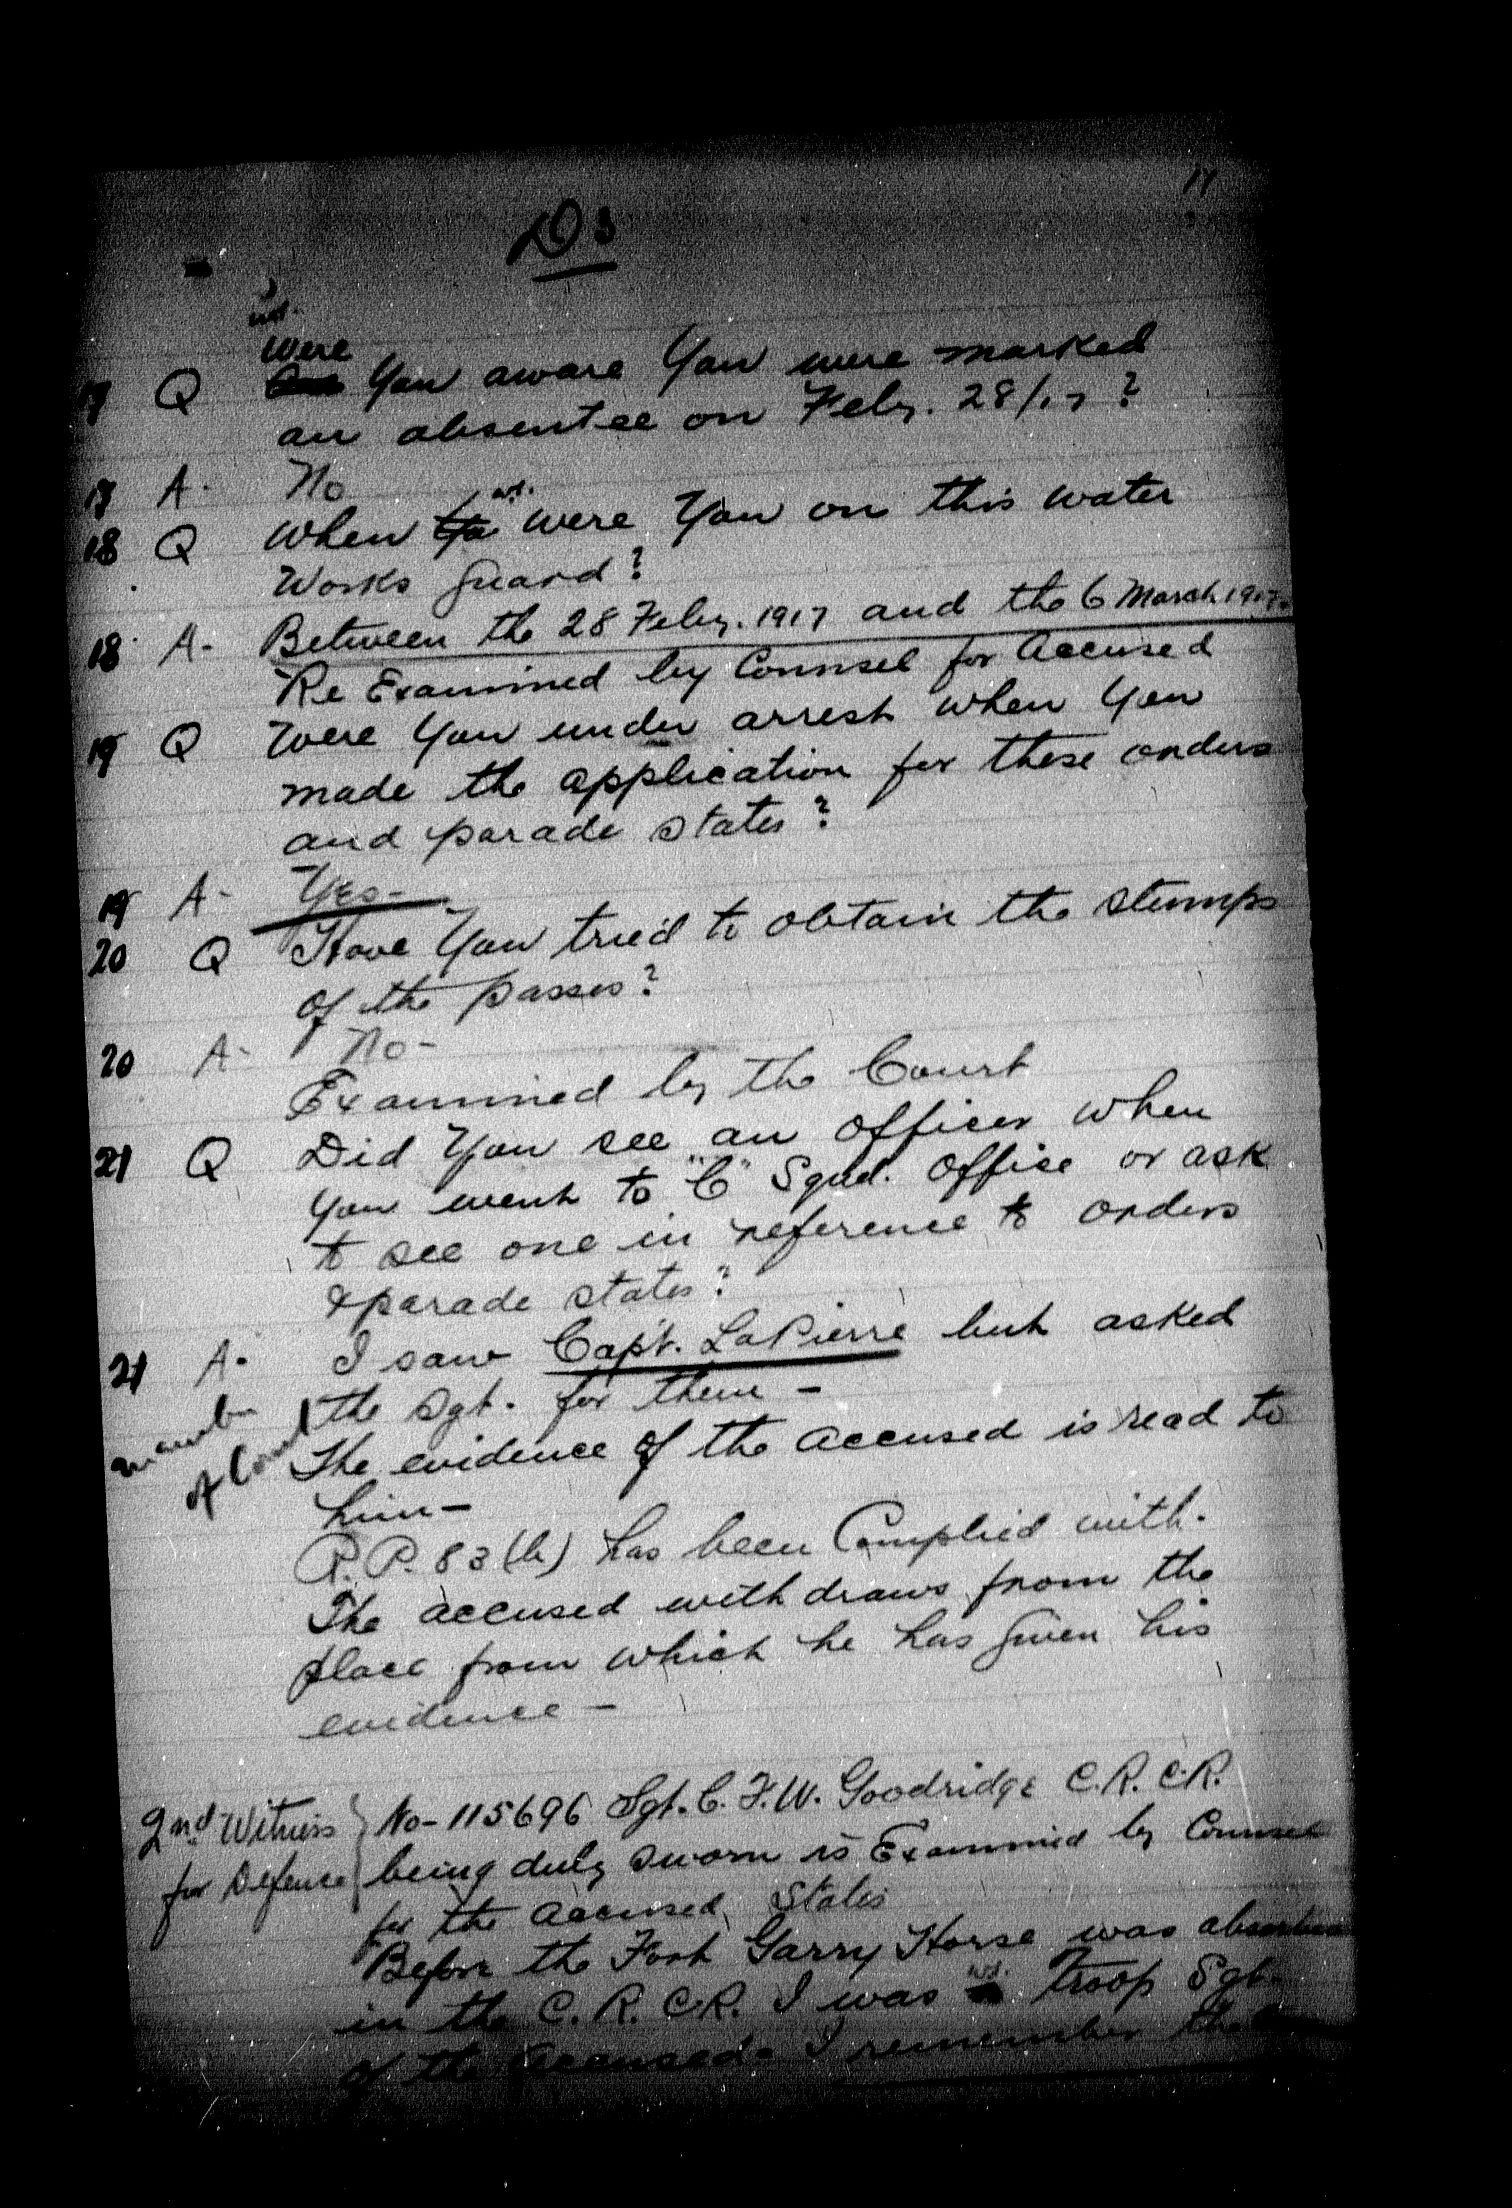 11
D3
Were
17 Q You aware You were marked
an absentee on Feby. 28/17?
17 A. No
18 Q When were You on this water
Works guard?
18 A. Between the 28 Feby. 1917 and the 6 March 1917.
Re Examined by Counsel for Accused
19 Q Were You under arrest when You
made the application for these orders
and parade states?
19 A- Yes-
20 Q Have You tried to obtain the stumps
of the passes?
20 A- No-
Examined by the Court
21 Q Did You see an officer when
you went to "C" Squd. Office or ask
to see one in reference to orders
& parade states?
21 A. I saw Capt. LaPierre but asked
the Sgt. for them -
a member
of Court
The evidence of the accused is read to
him-
R.P. 83 (b) has been Complied with.
The accused withdraws from the
place from which he has given his
evidence -
2nd Witness
for Defence
No- 115696 Sgt. C. F. W. Goodridge C.R.C.R.
being duly sworn is Examined by Counsel
for the accused, States
Before the Fort Garry Horse was absorbed
in the C.R.C.R. I was Troop Sgt.
of the accused. I remember the